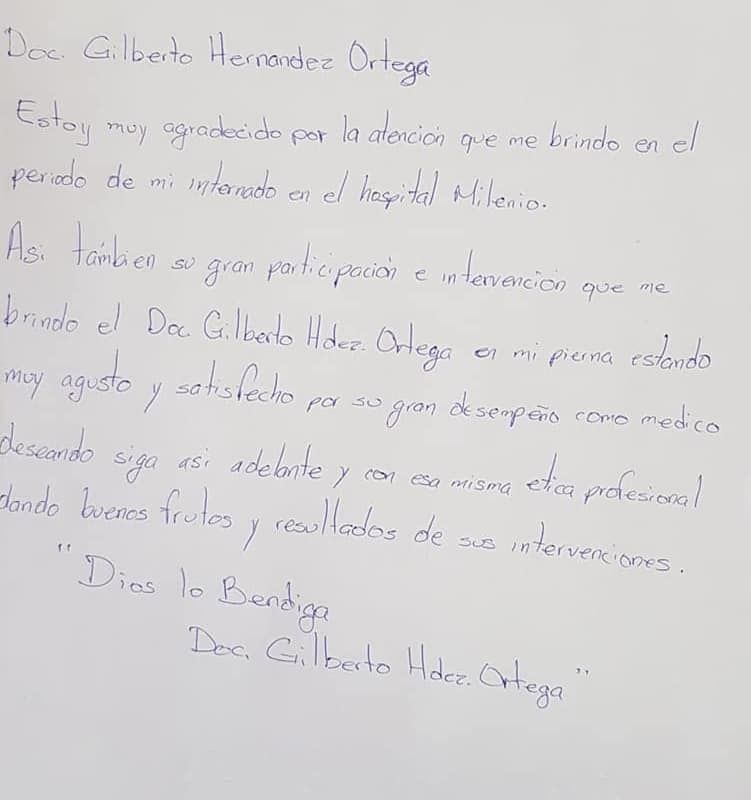 Doc. Gilberto Hernandez Ortega
Estoy muy agradecido por la atención que me brindo en el
periodo de mi internado en el hospital Milenio.
Asi también su gran participación e intervención que me
brindo el Doc Gilberto Hdez. Ortega en mi pierna estando
muy agusto y satisfecho por su gran desempeño como medico
deseando siga asi adelante y con esa misma etica profesional
dando buenos frutos y resultados de sus intervenciones.
"Dios lo Bendiga
Doc. Gilberto Hdez. Ortega"